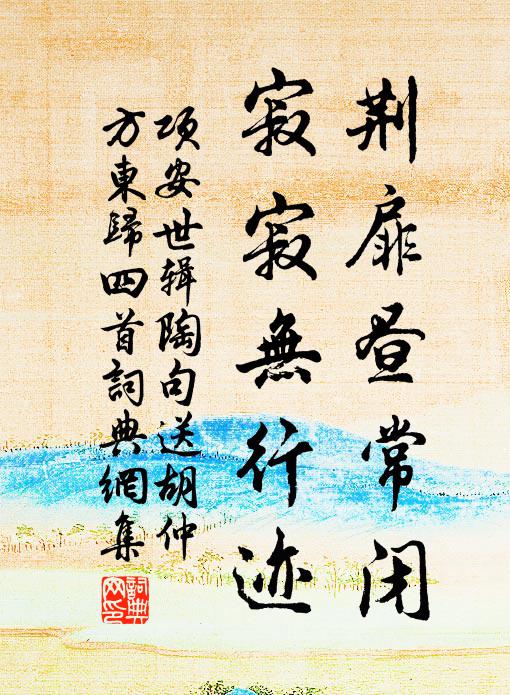 荆扉昼常闭
寂寂無行迹
項安世輯陶句送胡仲
方東歸四首詞典網集
詞典网印